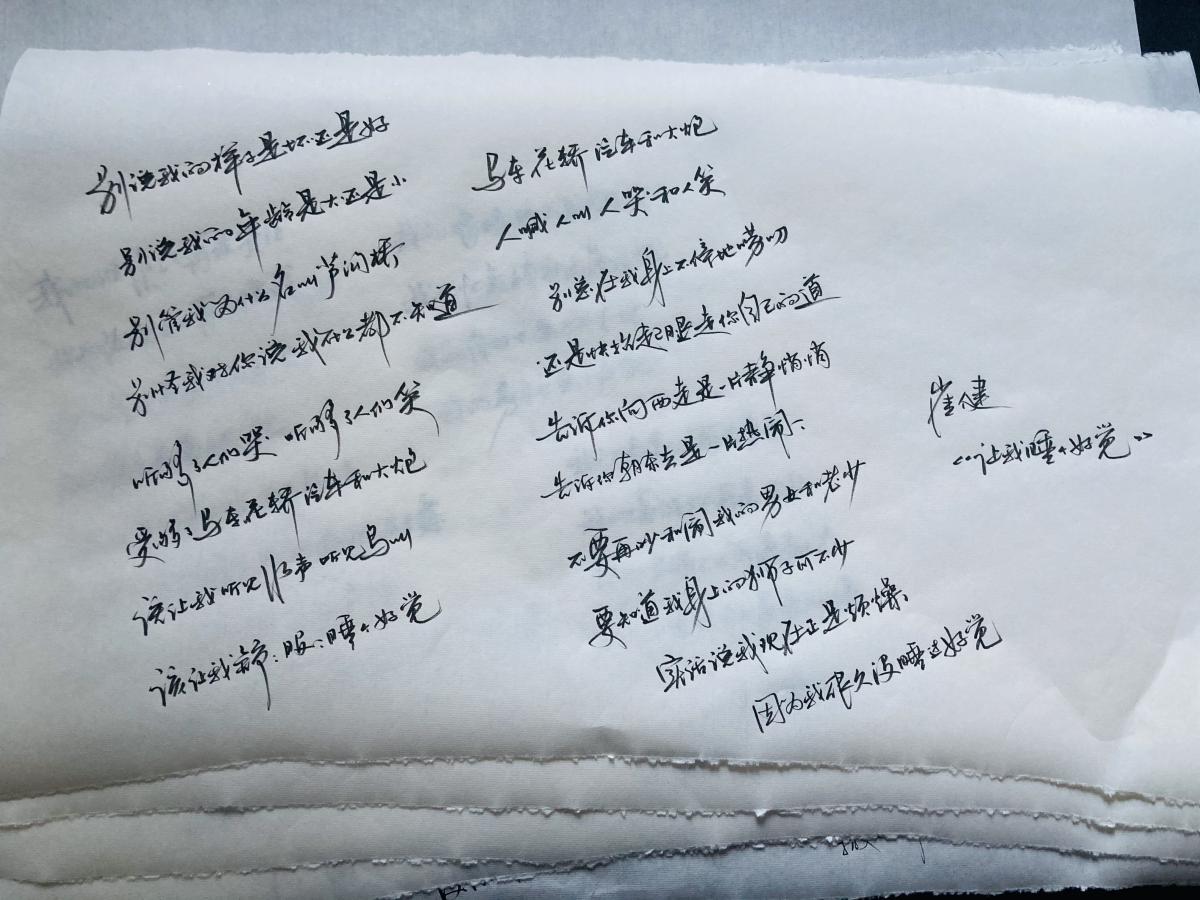 别说我的样子是坏还是好
别说我的年龄是大还是小
别管我为什么名叫芦沟桥
别怪我对你说我什么都不知道
听够了人们哭 听够了人们笑
受够了马车花轿汽车和大炮
该让我听见水声听见鸟叫
该让我舒舒服服睡个好觉
马车花轿汽车和大炮
人喊人叫人哭和人笑
别总在我身上不停地唠叨
还是快抬起腿走你自己的道
告诉你向西走是一片静悄悄
告诉你朝东去是一片热闹闹
不要再吵和闹我的男女和老少
要知道我身上的狮子可不少
实话说我现在正是烦燥燥
因为我很久没睡过好觉
崔健
《让我睡个好觉》